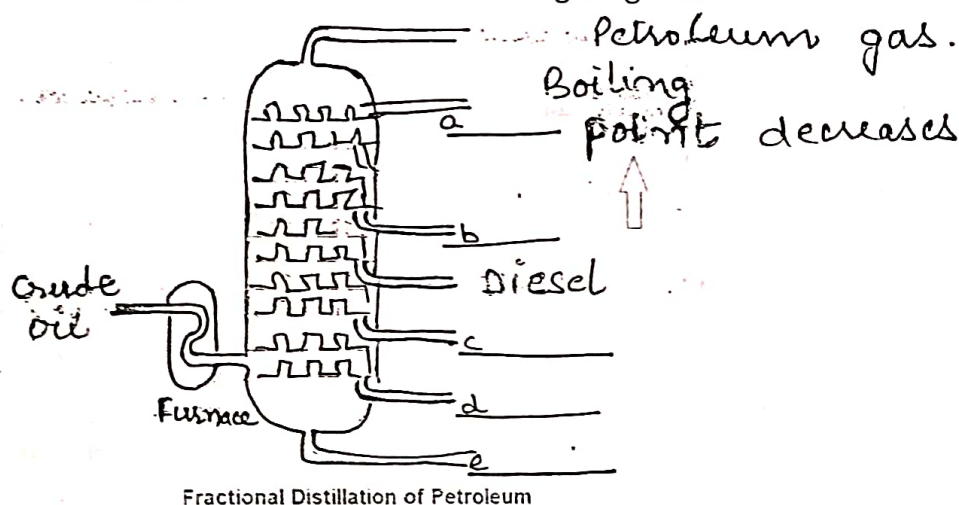 Petroleum gas.
Boiling
point decreases
a
b
Diesel
Crude
oil
c
d
Furnace
e
Fractional Distillation of Petroleum